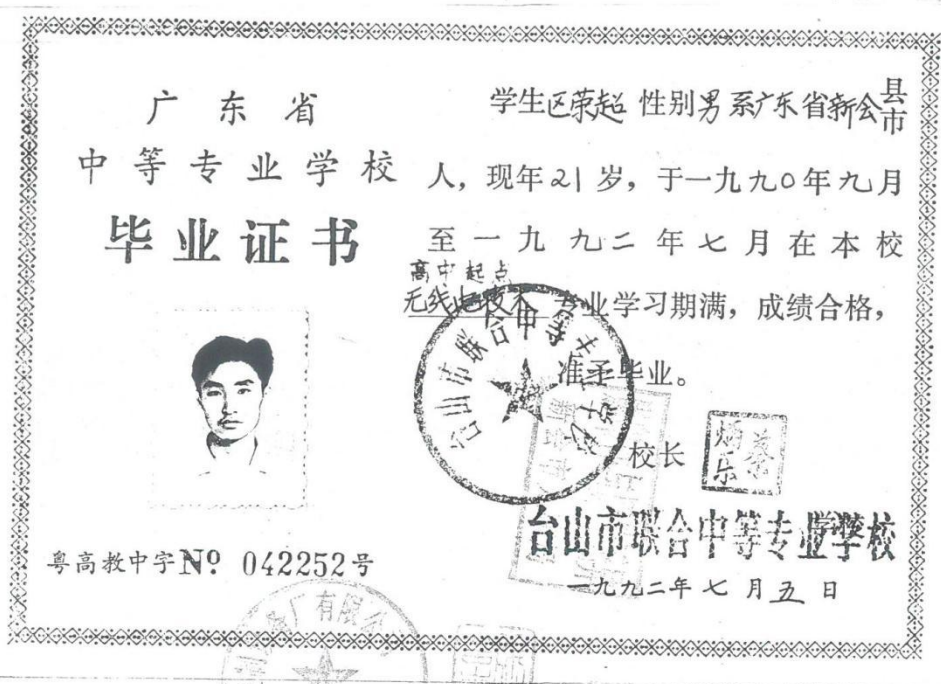 广东省
中等专业学校
毕业证书
粤高教中字№ 042252号
学生区荣超 性别男 系广东省新会县市
人，现年21岁，于一九九〇年九月
至一九九二年七月在本校
高中起点
无线电技术 专业学习期满，成绩合格，
准予毕业。
校长
台山市联合中等专业学校
台山市联合中等专业学校
一九九二年七月五日
厂有限公